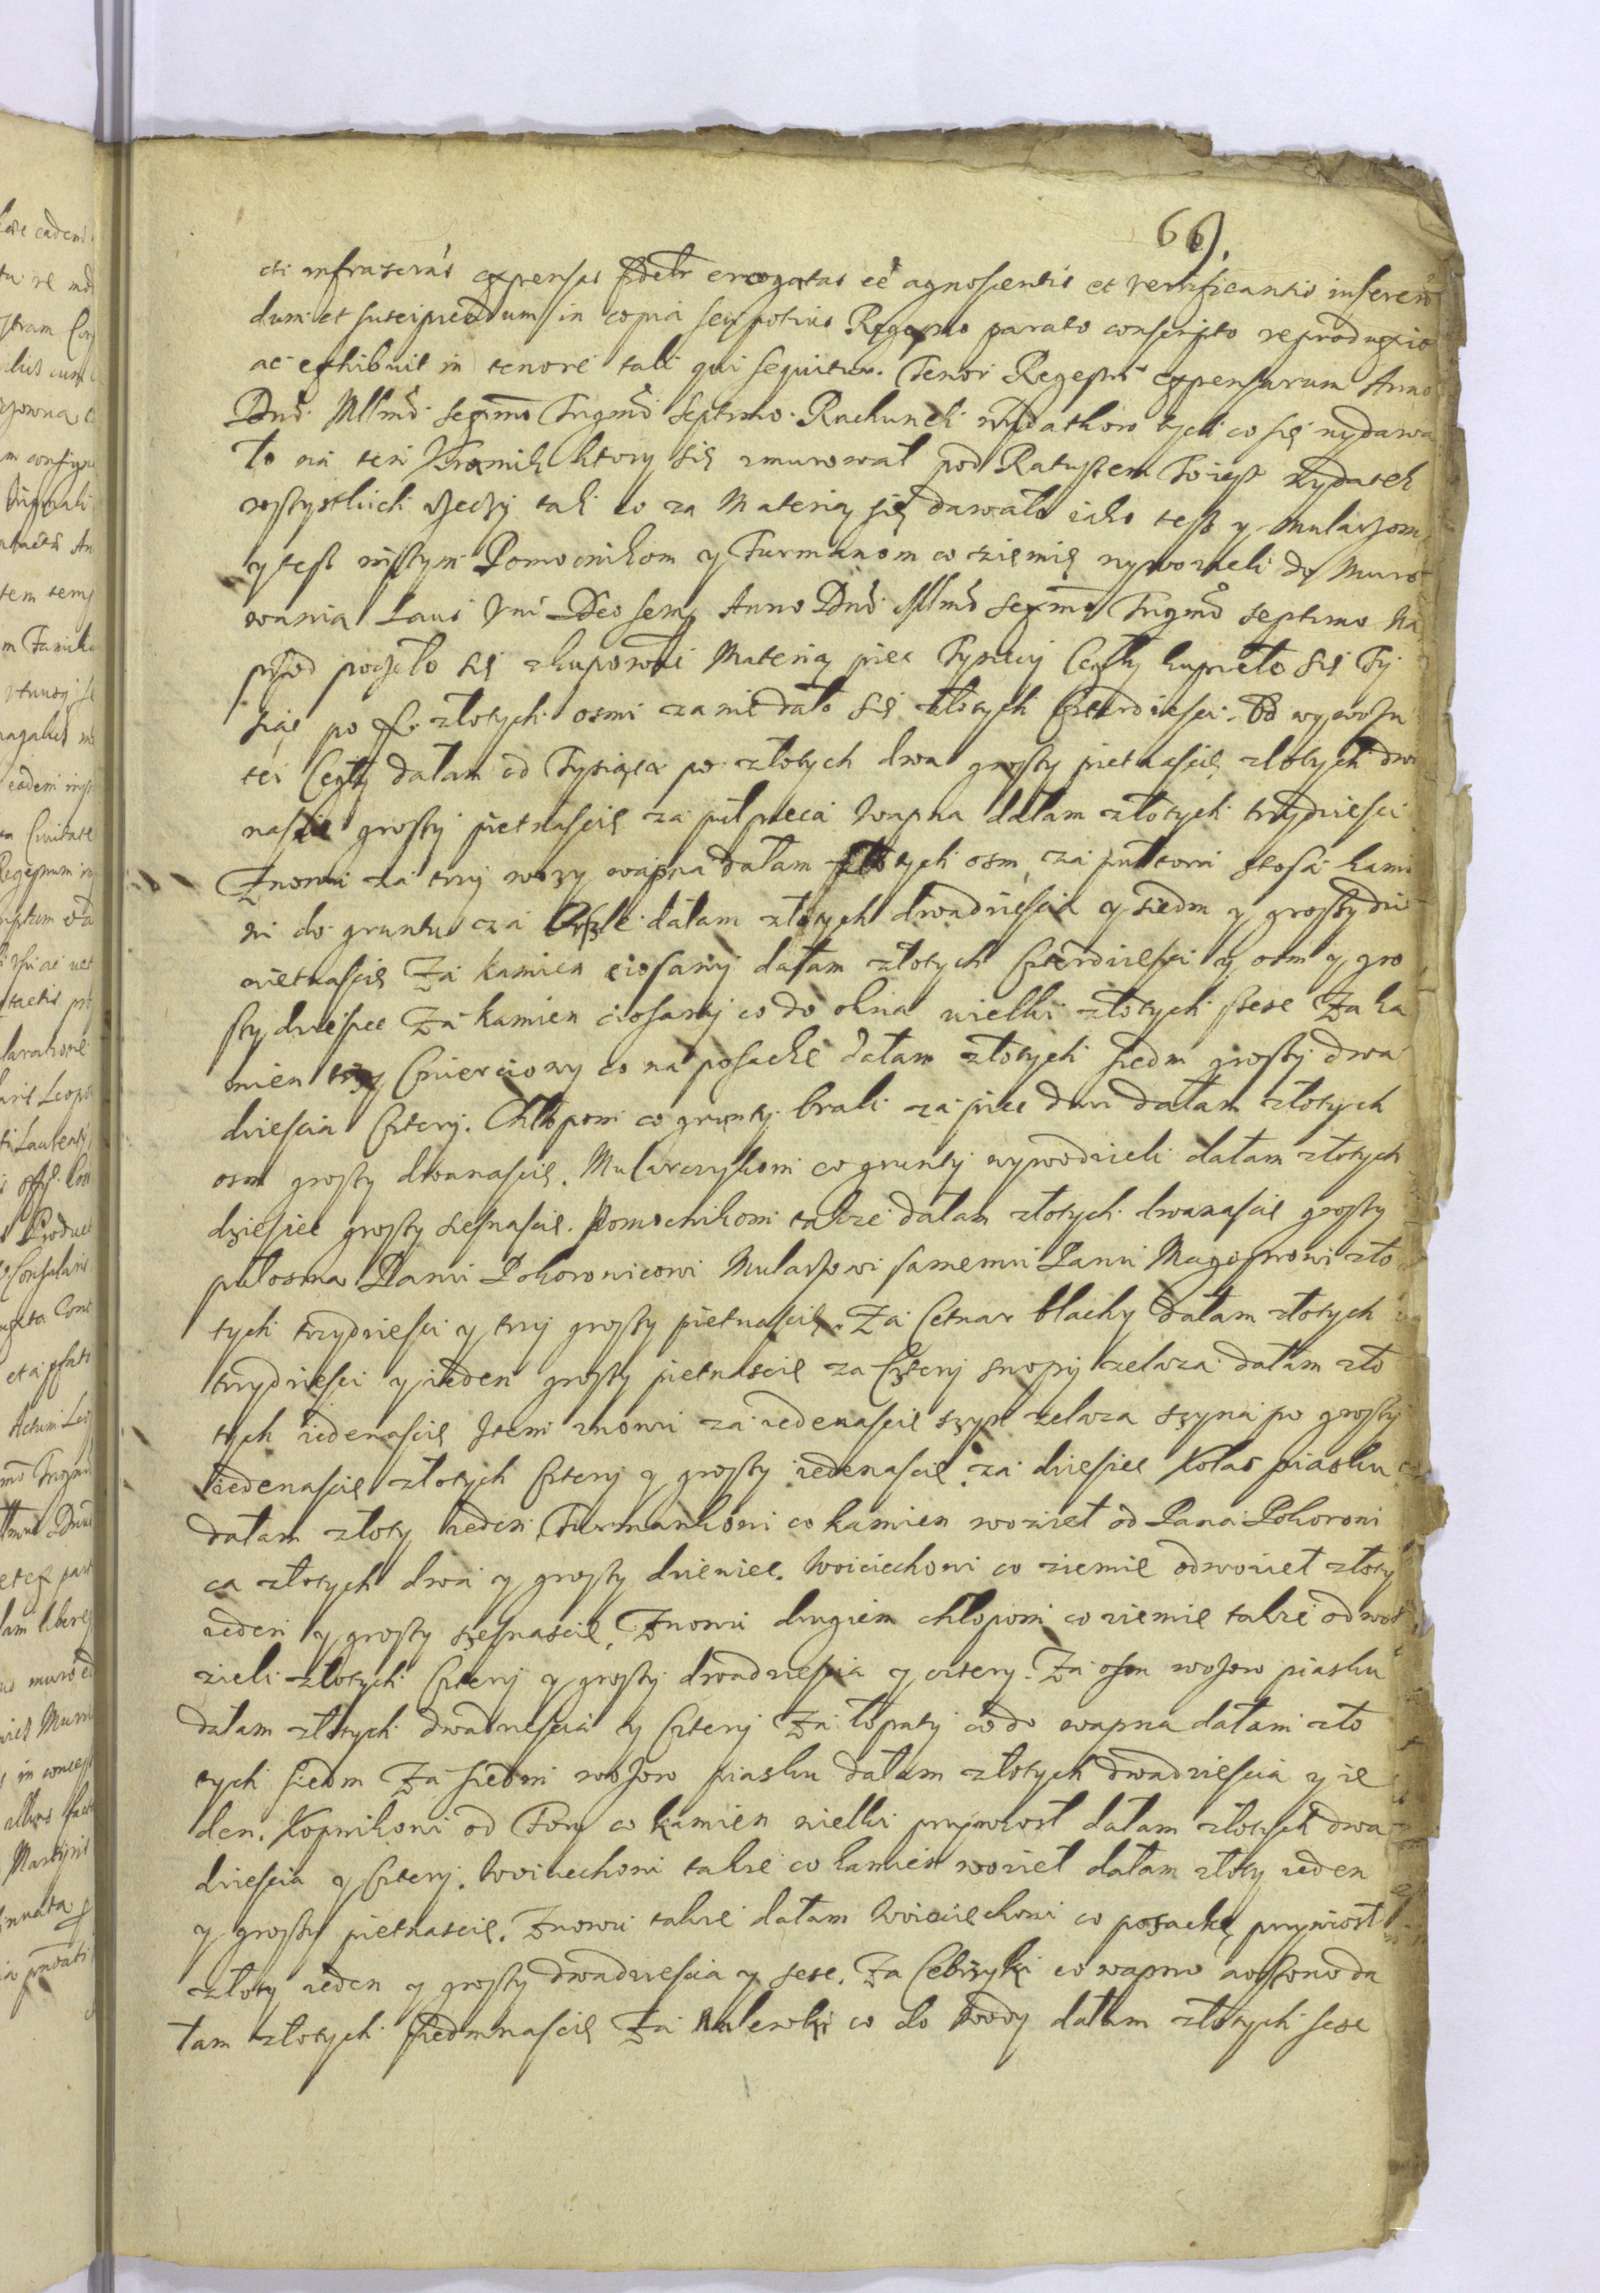 69.
et infrascras expensas fidelr erogatas eē agnoscentis et verificantis inseren
dum et suscipiendum in copia seu potius Regestro parato conscripto reproduxit
ac exhibuit in tenore tali qui sequitur. Tenor Regestri expensarum Anno
Dni Mllmo sexmo Trigmo septimo. Rachunek wydatkow tych co się wydawa
ło na ten Kramik ktory się zmurował pod Ratuszem To iest wydatek
wszystkich rzeczy tak co za Materią się dawało iako tesz y Mularzom
y tesz inszym Pomocnikom y Furmanom co ziemię wywozieli do Muro
wania Laus Vni Deo semp Anno Dni Mllmo sexmo Trigmo septimo Na
przod poczęło się zkupowac Materią piec Tysiecy Cegły kupieło się Ty
siąc po f. złotych osmi za nie dało się złotych czterdziesci. Od wywozu
tei Cegły dałam od Tysiąca po złotych dwa groszy pietnascie złotych dwa
nascie groszy pietnascie za puł pieca Wapna dałam złotych trzydziesci
Znowu za trzy wozy wapna dałam złotych osm, za pułtora stosa kami
ni do gruntu dałam złotych dwadziescia y siedm y groszy dzie
wietnascie Za kamien ciosany dałam złotych czterdziesci y osm y gro
szy dziesiec Za kamien ciosany co do okna wielki złotych szesc Za ka
mien trzy Cwierciowy co na posackę dałam złotych siedm groszy dwa
dziescia cztery. Chłopom co grunty brali za piec dni dałam złotych
osm groszy dwanascie. Mularczykom co grunty wywodzieli dałam złotych
dziesiec groszy szesnascie. Pomocnikom także dałam złotych dwanascie groszy
pułosma Panu Pokorowicowi Mularzowi samemu Panu Magistrowi zło
tych trzydziesci y trzy groszy pietnascie. Za Cetnar blachy dałam złotych
trzydziesci y ieden groszy pietnascie za Cztery snopy zelaza dałam zło
tych iedenascie Item znowu za iedenascie szyn zelaza szyna po groszy
iedenascie złotych cztery y groszy iedenascie. za dziesiec Kolas piasku
dałam złoty ieden Furmankowi co kamien woził od Pana Pokorowi
ca złotych dwa y groszy dziewiec. Woiciechowi co ziemie odwoził złoty
ieden y groszy szesnascie. Znowu drugiem chłopom co ziemie także odwo
zieli złotych Cztery y groszy dwadziescia y cztery. Za osm wozow piasku
dałam złotych dwadziescia y Cztery Za łopaty co do wapna dałam zło
tych siedm Za siedm wozow piasku dałam złotych dwadziescia y ie
den. Kopnikowi od Fory co kamien wielki przywiozł dałam złotych dwa
dziescia y Cztery. Woiciechowi także co kamien woził dałam złoty ieden
y groszy pietnascie. Znowu także dałam Woiciechowi co posackę przywiozł
złoty ieden y groszy dwadziescia y sesc. Za Cebrzyki co wapno noszono da
łam złotych siedmnascie Za Kulewki co do wody dałam złotych sesc